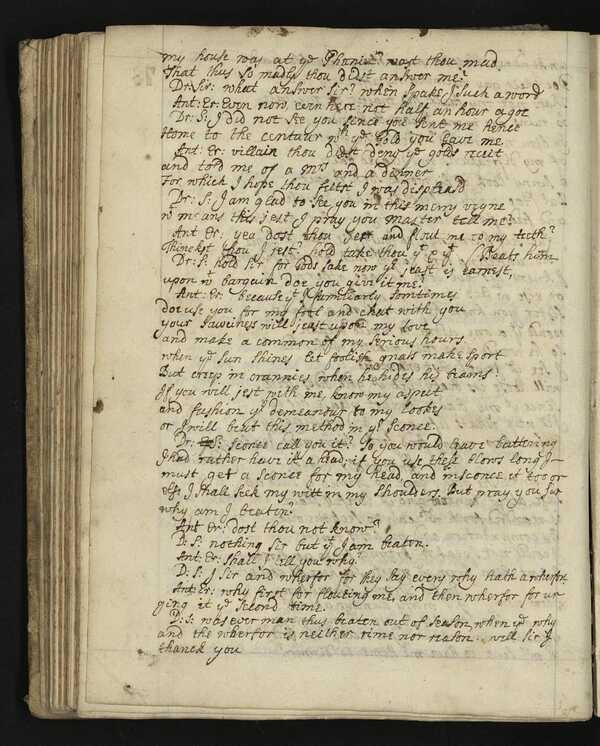 my house was at yͤ Phœnix? wast thou mad
That thus so madly thou didst answer me?
Dr: S: what answer sir? when spake I such a word
Ant: Er: Even now, even here not half an hour agoe
Dr: S: I did not see you since you sent me hence
Home to the centaur wᵗʰ yͤ gold you gave me
Ant: Er: villain thou didst deny yͤ golds receit
and told me of a Mʳˢ and a dinner
For which I hope thou feltst I was displeasd
Dr: S: I am glad to see you in this merry veyne
wᵗ means this jest I pray you master tell me?
Ant Er: yea dost thou jeer and flout me to my teeth?
Thinckst thou I jest? hold take thou yͭ & yͭ. (Beats him
Dr: S: hold sir for Gods sake now yͬ jeast is earnest,
upon wᵗ bargain doe you give it me.
Ant: Er: because yͭ I familiarly somtimes
doe use you for my fool and chat with you
your sawcines will jeast upon my love
and make a common of my serious hours
when yͤ sun shines let foolish gnats make sport
But creep in crannies when he hides his beams:
If you will jest with me, know my aspect
and fashion yͬ demeanour to my lookes
or I will beat this method in yͬ sconce.
Dr: S: sconce call you it? So you would leave battering
I had rather have it a head; if you use these blows long I
must get a sconce for my head, and insconce it too or
els I shall seek my witt in my shoulders. But pray you sir
why am I beaten?
Ant Er: dost thou not know?
D: S: nothing sir but yͭ I am beaten.
Ant: Er: shall I tell you why?
D: S: I sir and wherfor for they say every why hath a wherfor.
Ant: Er: why first for flouting me, and then wherfor for ur
ging it yͤ second time.
D: S: was ever man thus beaten out of season, when yͤ why
and the wherfor is neither rime nor reason. well sir I
thanck you